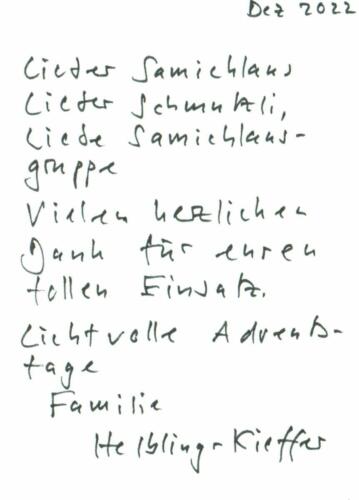 Dez 2022
Lieber Samichlaus
Lieber Schmutzli,
Liebe Samichlaus-
gruppe
Vielen herzlichen
Dank für euren
tollen Einsatz.
Lichtvolle Advents-
tage
Familie
Helbling-Kieffer